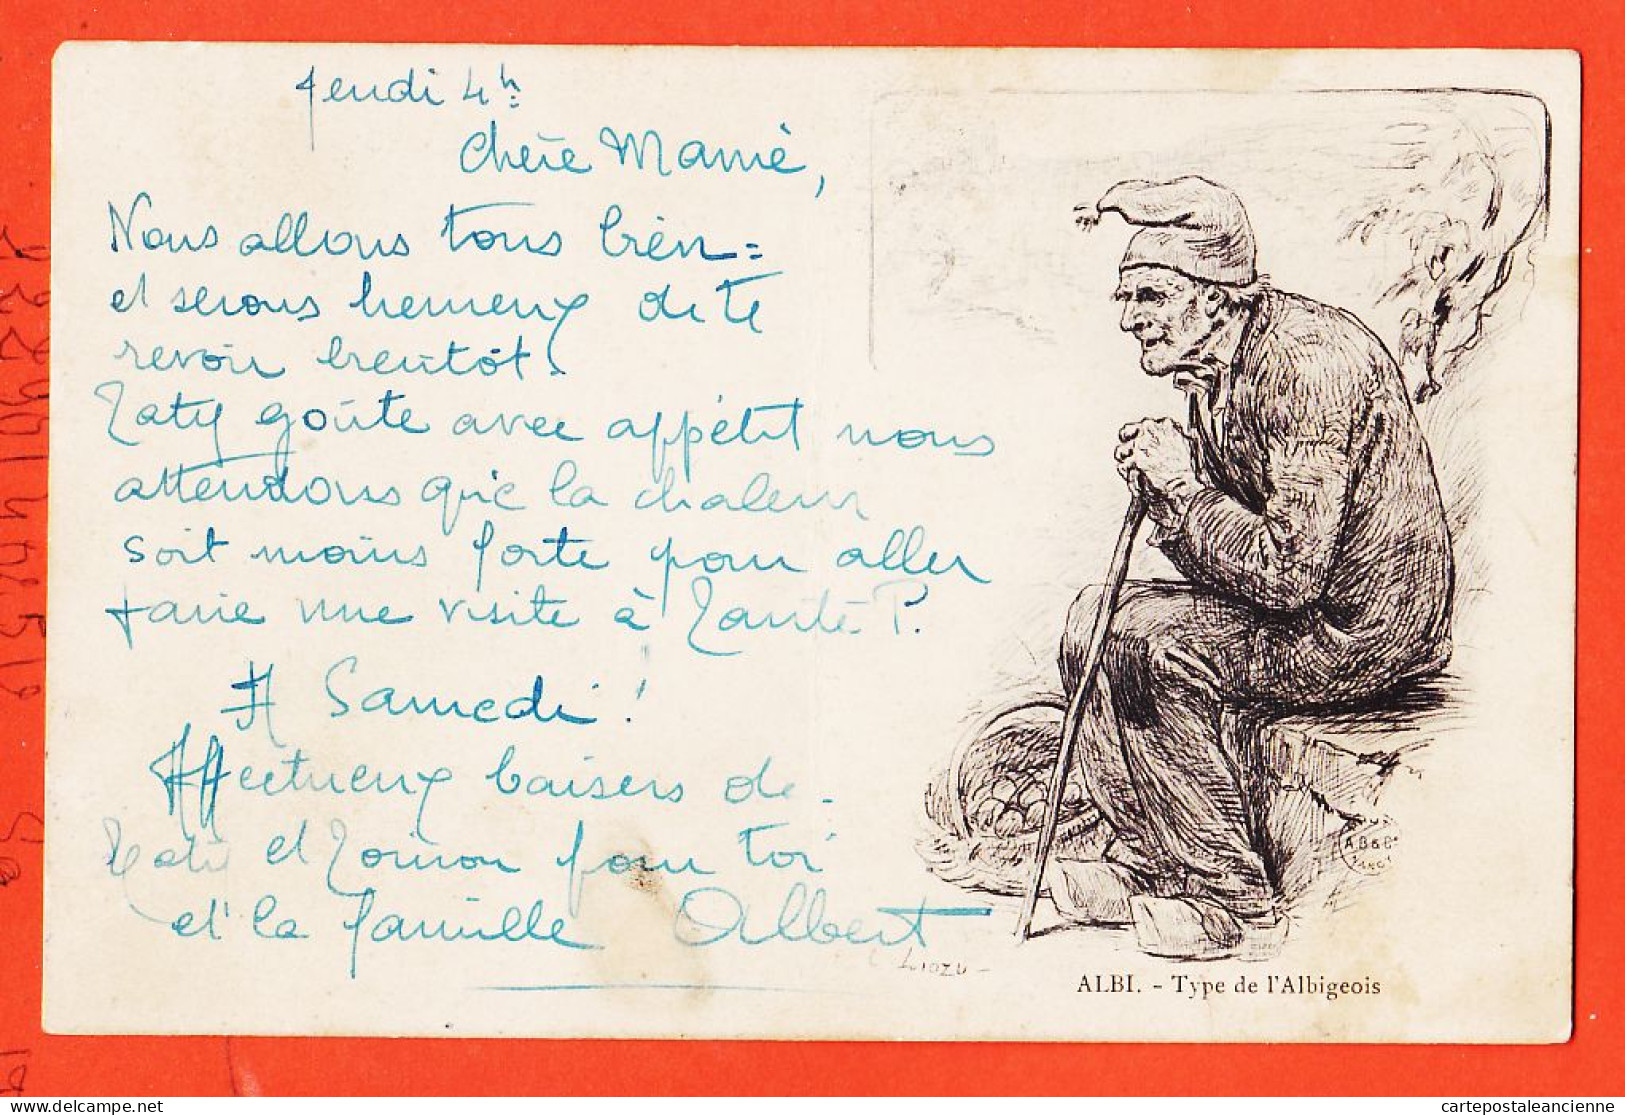 Jeudi 4h
Chère Mamie,
Nous allons tous bien =
et serons heureux de te
revoir bientôt.
Katy goûte avec appétit nous
attendons que la chaleur
soit moins forte pour aller
faire une visite à Tante P.
A Samedi !
Affectueux baisers de
Katy et pour toi
et la famille Albert
LIOZU
A.B&Cie
ALBI. - Type de l'Albigeois
cartepostaleancienne
delcampe.net
www.cartepostaleancienne